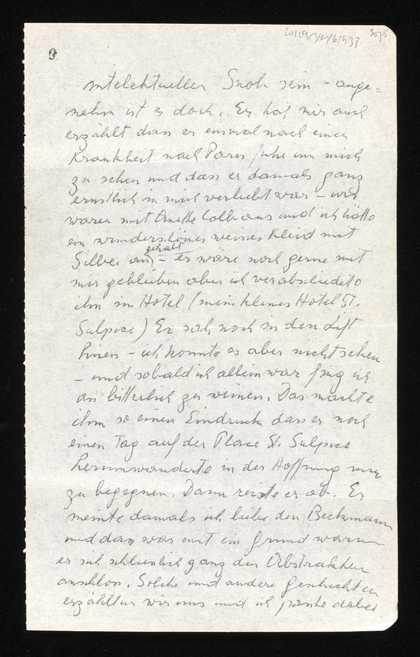 9
intelektueller Snob sein – ange=
nehm ist es doch. Er hat mir auch
erzählt dass er einmal nach einer
Krankheit nach Paris fuhr um mich
zu sehen und dass er damals ganz
ernstlich in mich verliebt war – wir
waren mit aus und ich hatte
ein wunderschönes weisses Kleid mit
Silber an – es wäre noch gerne mit
mir geblieben aber ich verabschiedete
ihn im Hotel (mein kleines Hotel St.
Sulpice) Er sah noch in den Lift
hinein – ich konnte es aber nicht sehen
– und sobald ich allein war fing ich
an bitterlich zu weinen. Das machte
ihm so einen Eindruck dass er noch
einen Tag auf der Place St. Sulpice
herumwanderte in der Hoffnung mir
zu begegnen. Dann reiste er ab. Er
meinte damals ich liebe den Beckmann
und das war mit ein Grund warum
er sich schliesslich ganz den Abstrakten
anschloss. Solche und andere Geschichten
erzählten wir uns und ich dabei